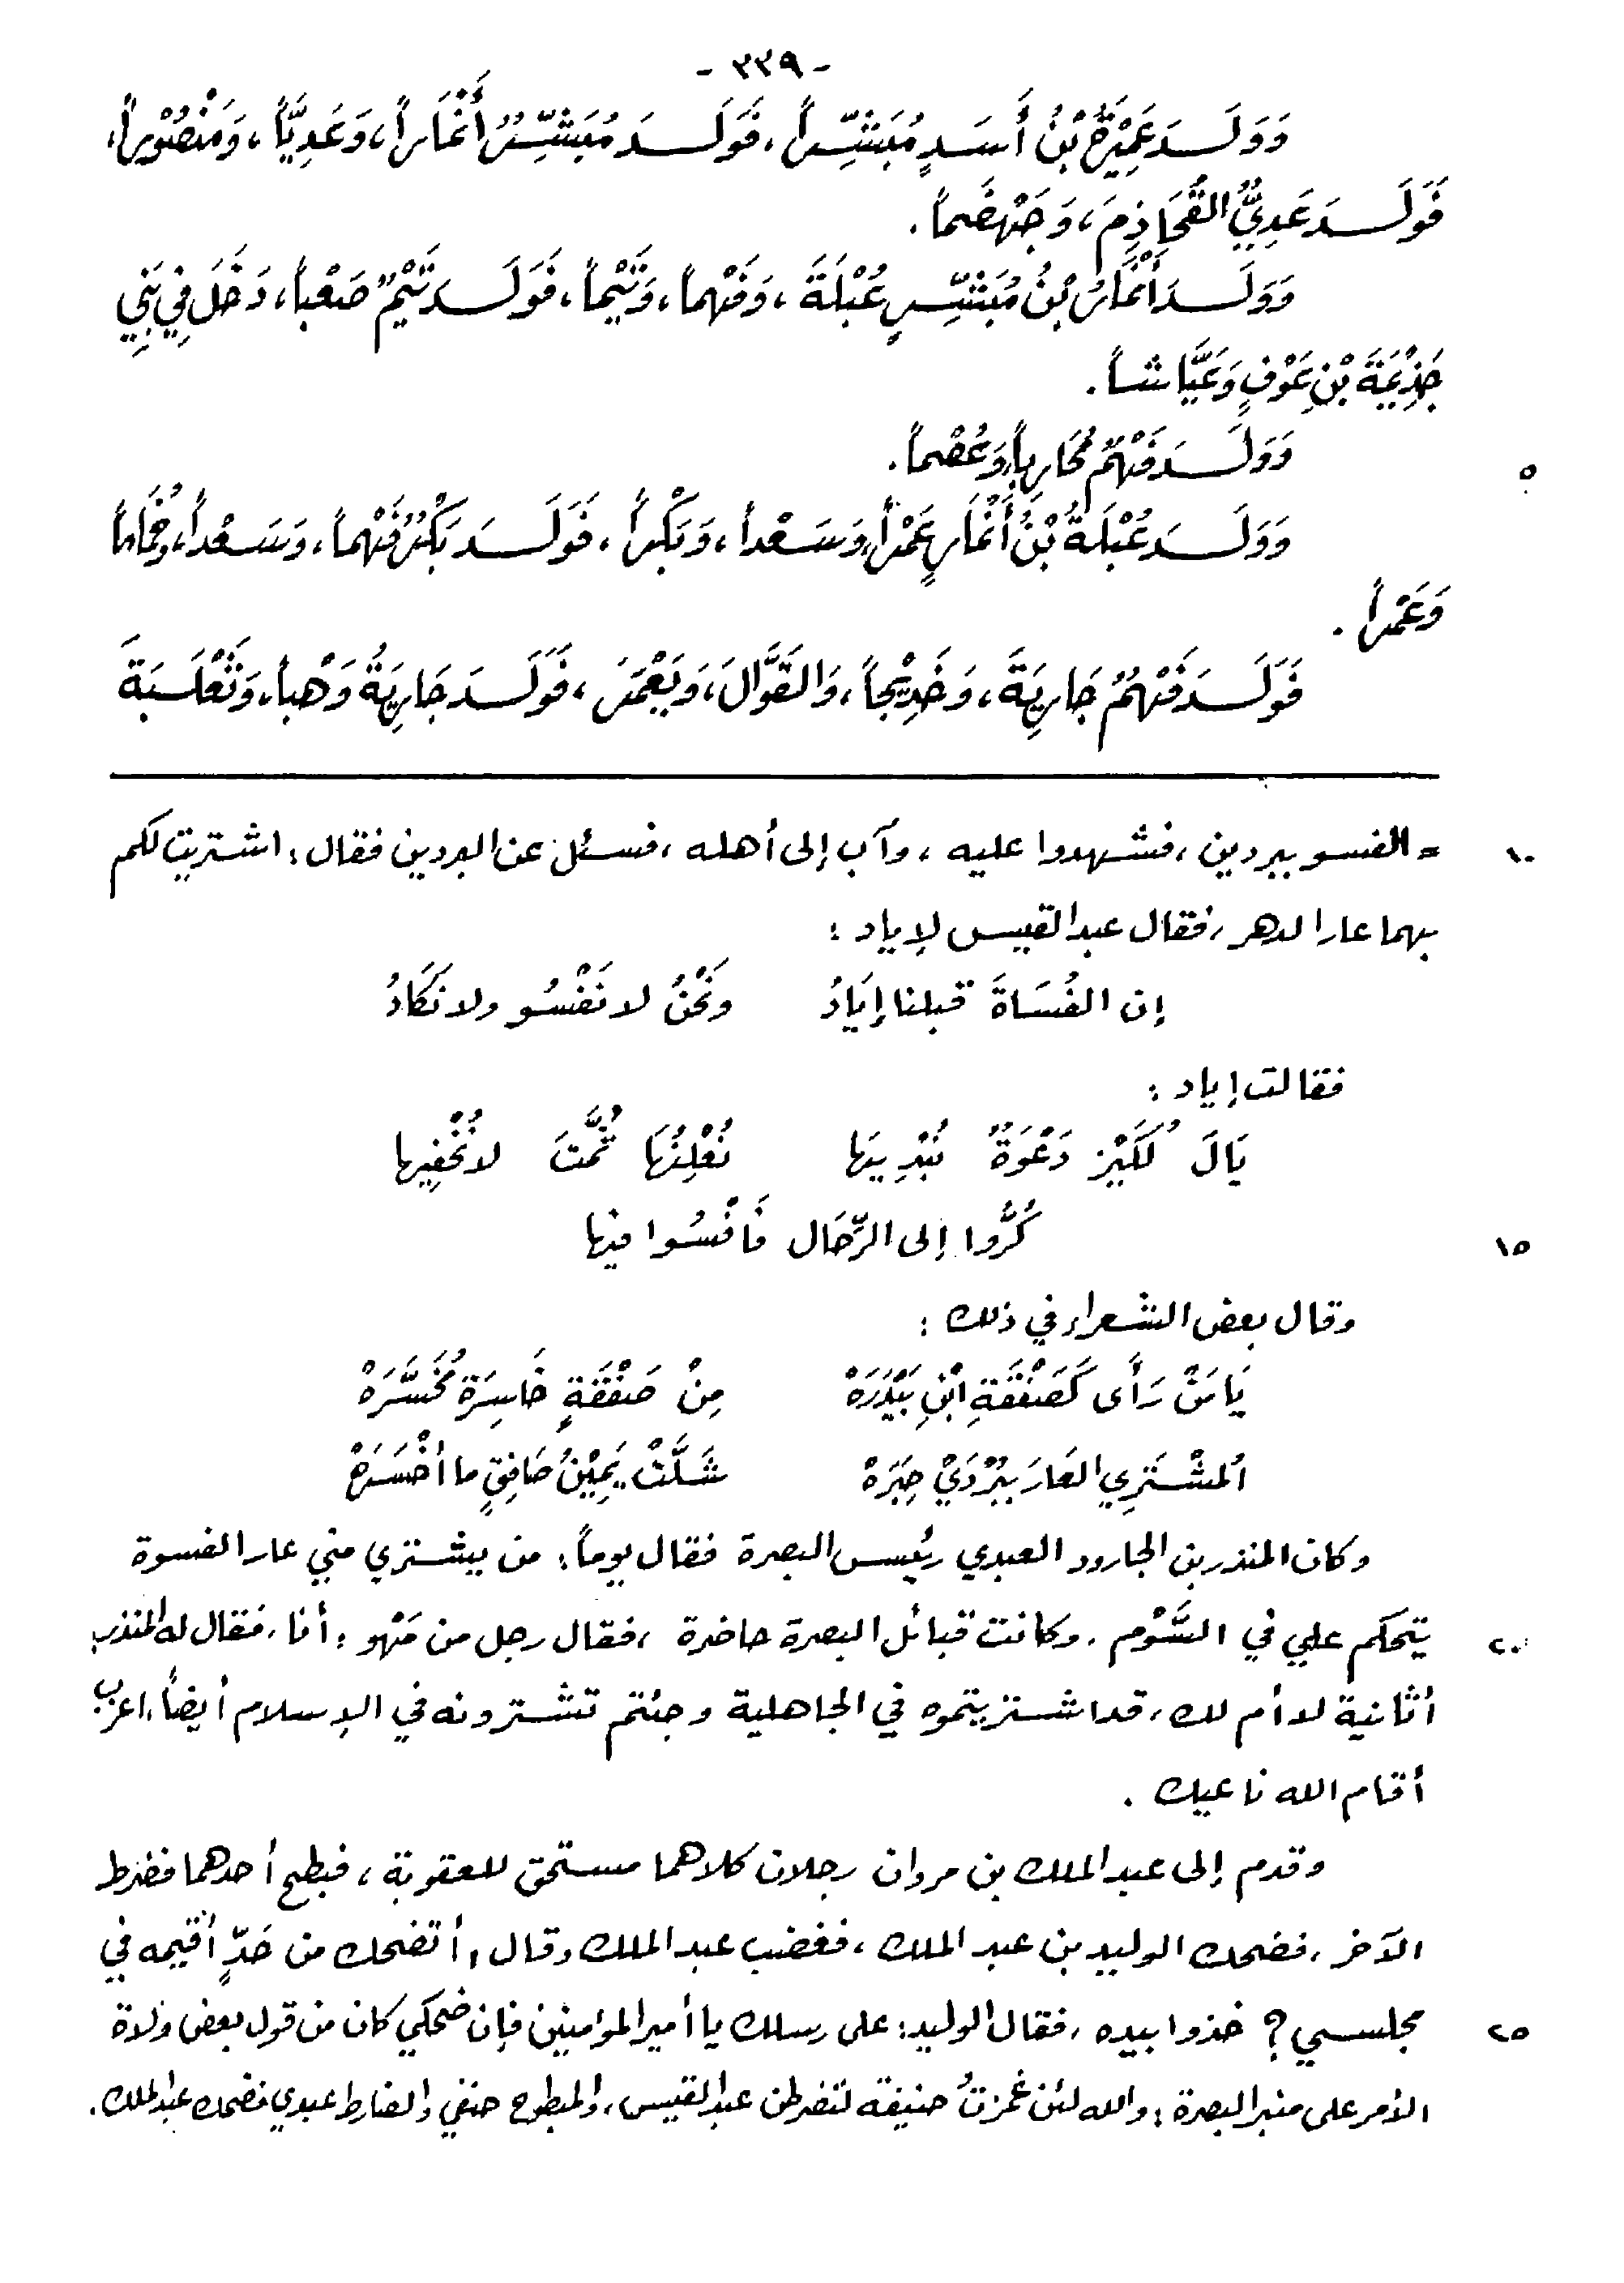 - ٣٣٩ -
وَوَلَدَ عَمِيْرَةُ بْنُ أَسَدٍ مُبَشِّراً، فَوَلَدَ مُبَشِّرٌ أَنْمَاراً، وَعَدِيَّاً، وَمَنْصُوْراً،
فَوَلَدَ عَدِيٌّ القُحَاذِمَ، وَجَهْضَماً.
وَوَلَدَ أَنْمَارُ بْنُ مُبَشِّرٍ عُبْلَةَ، وَفَهْماً، وَتَيْماً، فَوَلَدَ تَيْمٌ صَعْباً، دَخَلَ فِي بَنِي
جَذِيْمَةَ بْنِ عَوْفٍ وَعَيَّاشاً.
وَوَلَدَ فَهْمٌ مُحَارِباً، وَعُصْماً.
٥
وَوَلَدَ عُبْلَةُ بْنُ أَنْمَارٍ عَمْراً، وَسَعْداً، وَبَكْراً، فَوَلَدَ بَكْرٌ فَهْماً، وَسَعْداً، وَحُمَاماً
وَعَمْراً.
فَوَلَدَ فَهْمٌ جَارِيَةَ، وَخَدِيْجاً، وَالقَوَّالَ، وَيَعْمَرَ، فَوَلَدَ جَارِيَةُ وَهْباً، وَثَعْلَبَةَ
= الفسو ببردين، فشهدوا عليه، وآب إلى أهله، فسئل عن البردين فقال: اشتريت لكم
١٠
بهما عار الدهر، فقال عبد القيس لإياد:
إن الفُسَاةَ قبلنا إيَادُ ونَحْنُ لا نَفْسُو ولا نَكَادُ
فقالت إياد:
يَالَ لُكَيْزٍ دَعْوَةٌ نُبْدِيهَا نُعْلِنُهَا ثُمَّتَ لا نُخْفِيها
كُرُّوا إلى الرِّحَال فَافْسُوا فيها
١٥
وقال بعض الشعراء في ذلك:
يَا مَنْ رَأَى كَصَفْقَةِ ابْنِ بَيْدَرَهْ مِنْ صَفْقَةٍ خَاسِرَة مُخَسَّرَهْ
اَلمشْتَرِي العَارَ بِبُرْدَيْ حِبَرَهْ شَلَّتْ يَمِيْنُ صَافِقٍ ما أَخْسَرَهْ
وكان المنذر بن الجارود العبدي رئيس البصرة فقال يوماً: من يشتري مني عار الفسوة
يتحكم علي في السَّوْم، وكانت قبائل البصرة حاضرة، فقال رجل من مَهْو: أنا، فقال له المنذر:
٢٠
أثانية لا أم لك، قد اشتريتموه في الجاهلية وجئتم تشترونه في الإسلام أيضاً، اعزب
أقام الله ناعيك.
وقدم إلى عبد الملك بن مروان رجلان كلاهما مستحق للعقوبة، فبطح أحدهما فضرط
الآخر، فضحك الوليد بن عبد الملك، فغضب عبد الملك وقال: أتضحك من حَدٍّ أقيمه في
مجلسي؟ خذوا بيده، فقال الوليد: على رسلك يا أمير المؤمنين فإن ضحكي كان من قول بعض ولاة
٢٥
الأمر على منبر البصرة: والله لئن غمزتُ حنيفة لتضرطن عبد القيس، والمبطوح حنفي والضارط عبدي فضحك عبد الملك.